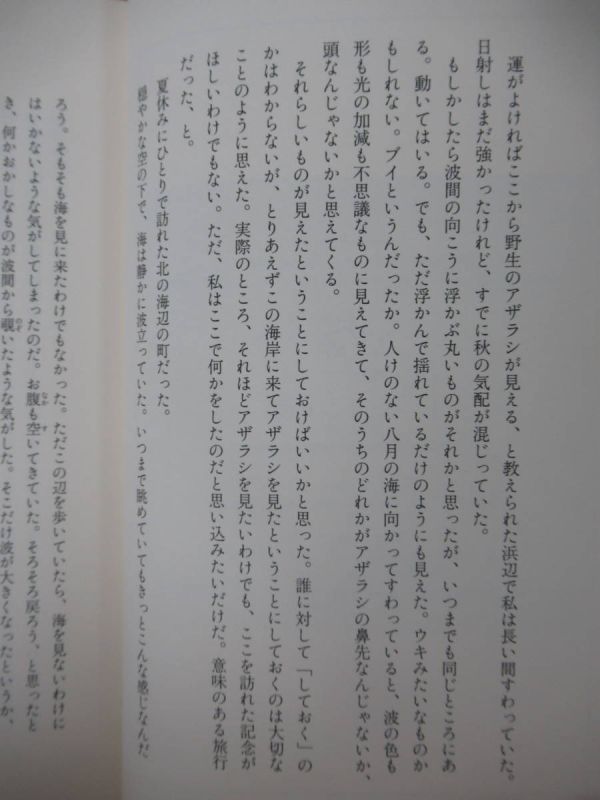 運がよければここから野生のアザラシが見える、と教えられた浜辺で私は長い間すわっていた。
日射しはまだ強かったけれど、すでに秋の気配が混じっていた。
もしかしたら波間の向こうに浮かぶ丸いものがそれかと思ったが、いつまでも同じところにあ
る。動いてはいる。でも、ただ浮かんで揺れているだけのようにも見えた。ウキみたいなものか
もしれない。ブイというんだったか。人けのない八月の海に向かってすわっていると、波の色も
形も光の加減も不思議なものに見えてきて、そのうちのどれかがアザラシの鼻先なんじゃないか、
頭なんじゃないかと思えてくる。
それらしいものが見えたということにしておけばいいかと思った。誰に対して「しておく」の
かはわからないが、とりあえずこの海岸に来てアザラシを見たということにしておくのは大切な
ことのように思えた。実際のところ、それほどアザラシを見たいわけでも、ここを訪れた記念が
ほしいわけでもない。ただ、私はここで何かをしたのだと思い込みたいだけだ。意味のある旅行
だった、と。
夏休みにひとりで訪れた北の海辺の町だった。
穏やかな空の下で、海は静かに波立っていた。いつまで眺めていてもきっとこんな感じなんだ
ろう。そもそも海を見に来たわけでもなかった。ただこの辺を歩いていたら、海を見ないわけに
はいかないような気がしてしまったのだ。お腹も空いてきていた。そろそろ戻ろう、と思ったと
き、何かおかしなものが波間から覗いたような気がした。そこだけ波が大きくなったというか、